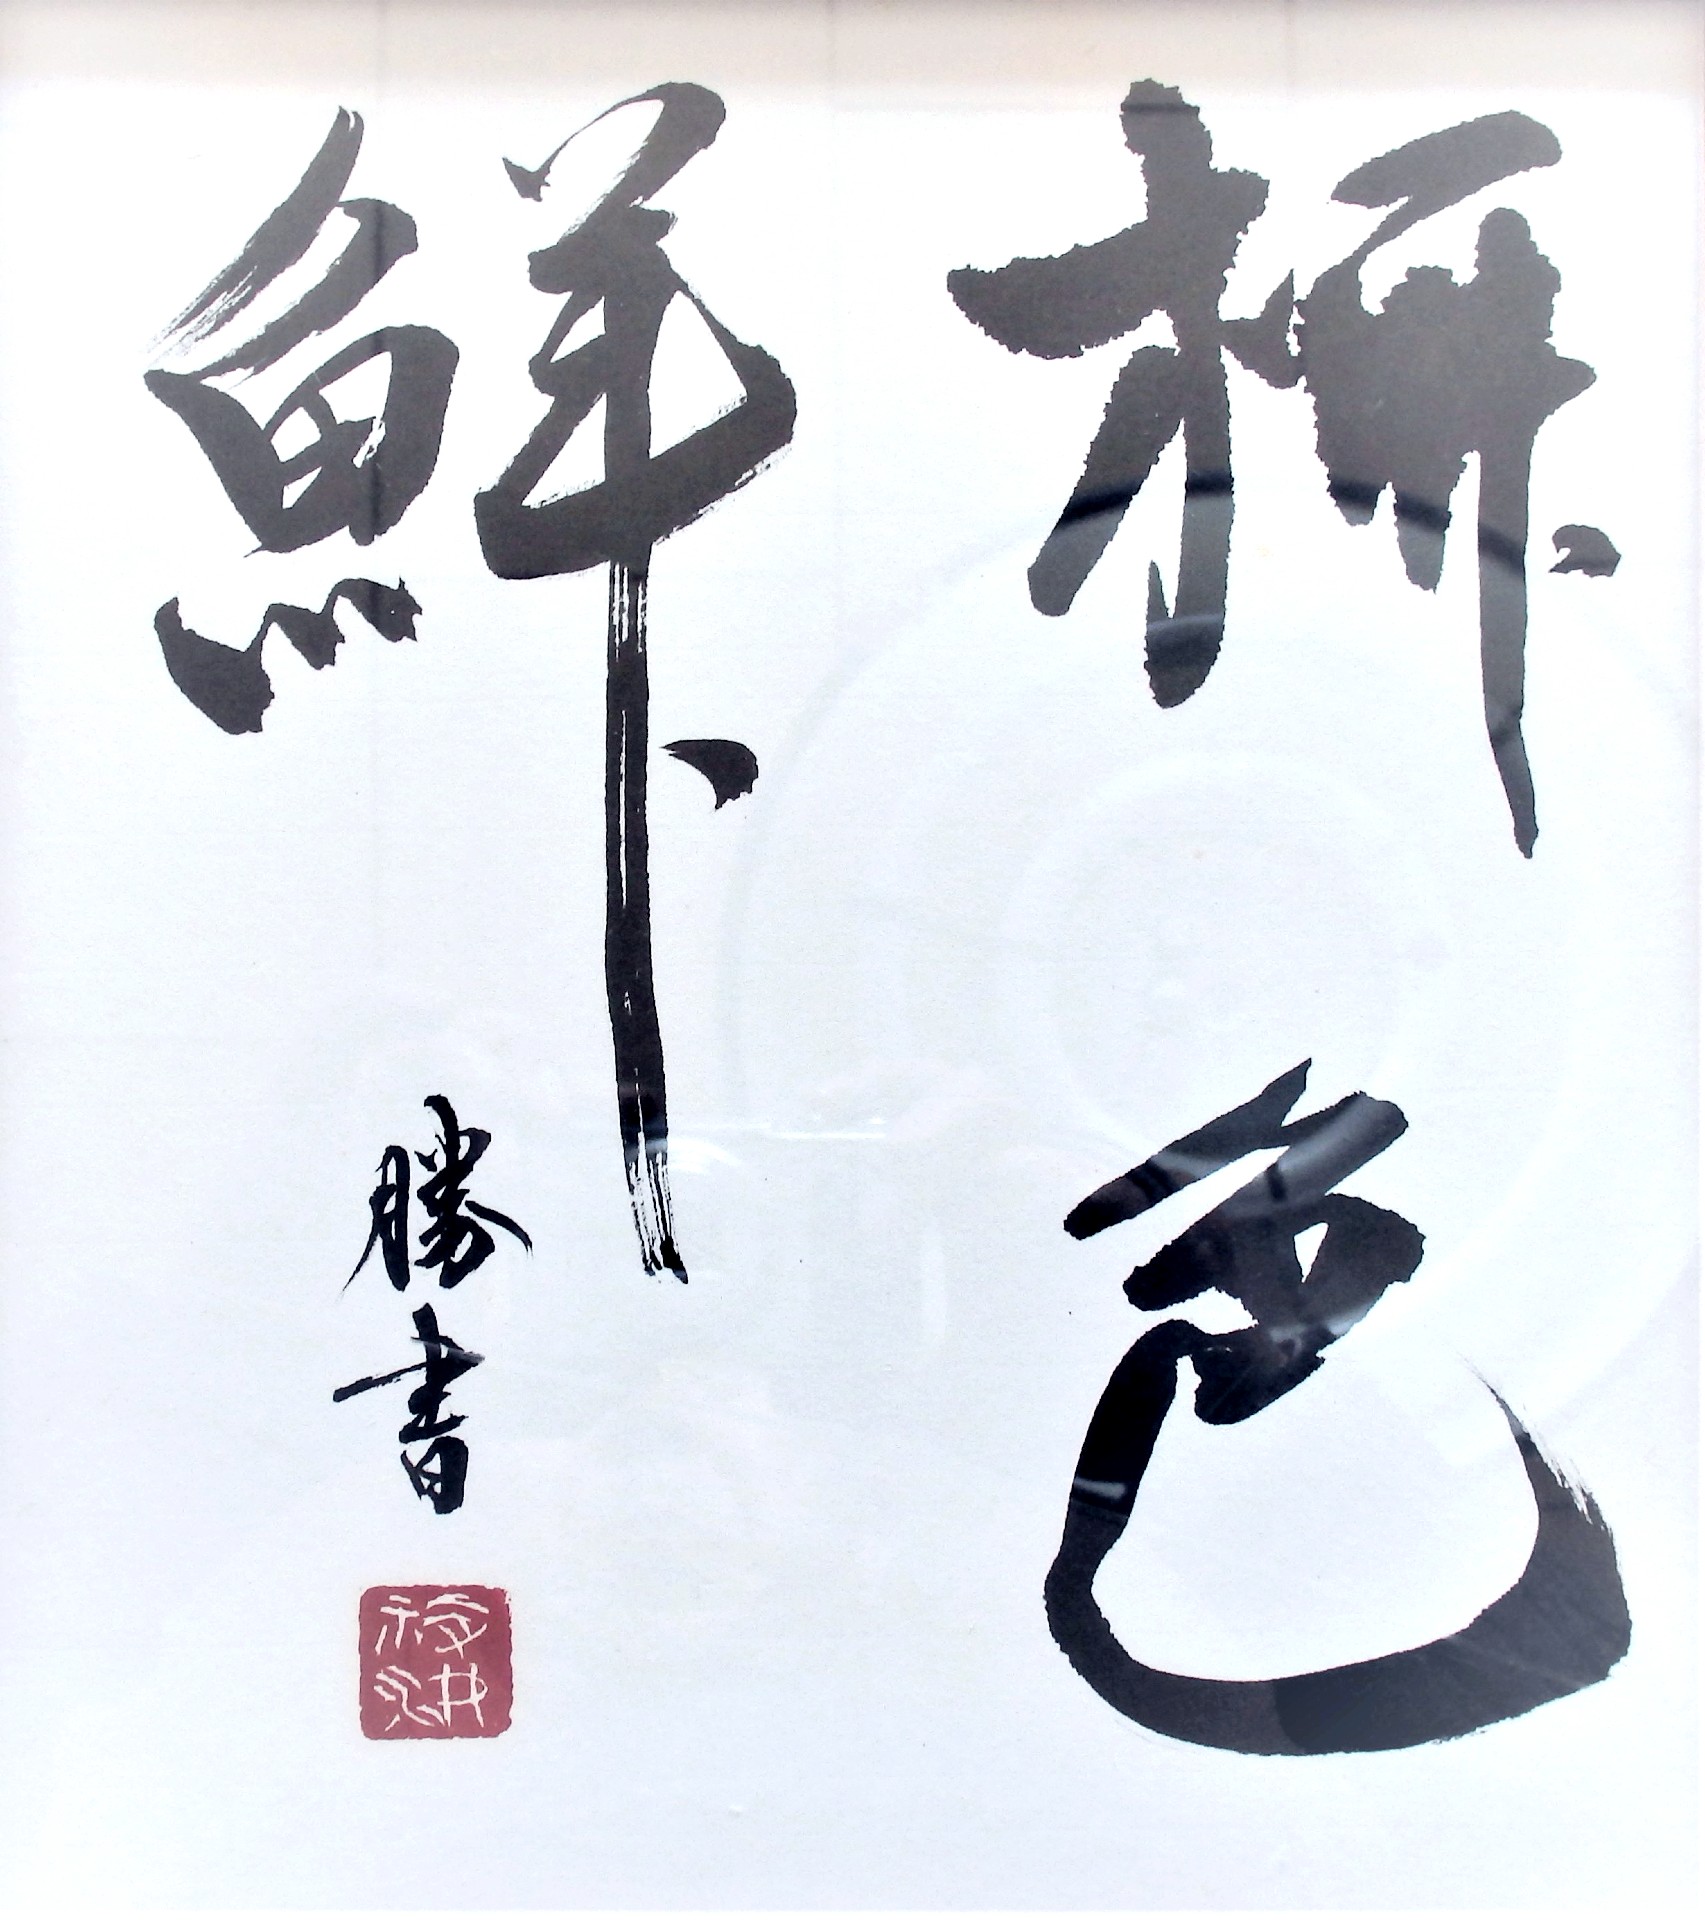 柳色
鮮
勝書